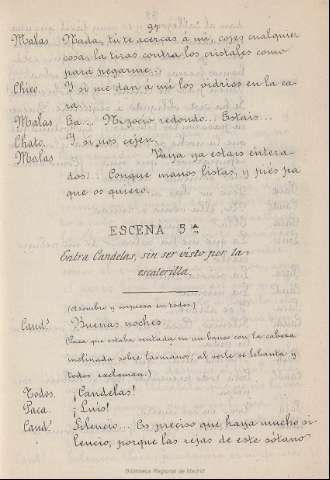 Malas. Nada, tú te acercas á mi, cojes cualquier
cosa, la tiras contra los cristales como
para pegarme...
Chico. Y si me dan á mi los vidrios en la ca-
ra.
Malas. Ea... Nigocio redondo... Estais...
Chato. Y si nos cojen.
Malas Vaya ya estais entera-
dos: Conque manos listas, y pies pa
que os quiero.
ESCENA 5ª
Entra Candelas, sin ser visto por la
escalerilla.
(Asombro y sorpresa en todos.)
Candˢ. Buenas noches.
(Paca que estaba sentada en un banco con la cabeza
inclinada sobre las manos; al verle se lebanta y
todos esclaman.)
Todos. ¡Candelas!
Paca. ¡Luis!
Candˢ. Silencio... Es preciso que haya mucho si-
lencio, porque las rejas de este sótano
Biblioteca Regional de Madrid